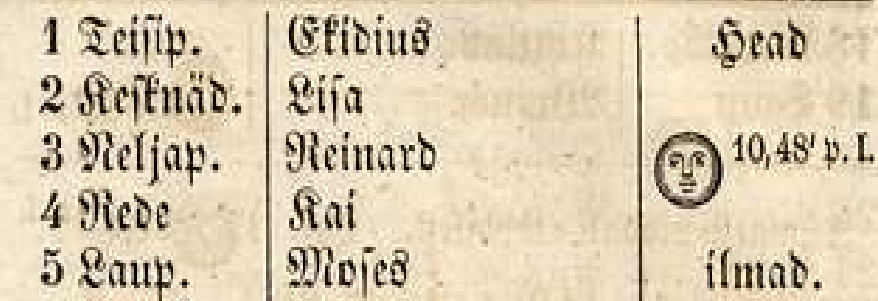 1 Teisip. Ekidius Head
2 Kesknäd. Lisa
3 Neljap. Reinard 10,48' p. L.
4 Rede Kai
5 Laup. Moses ilmad.